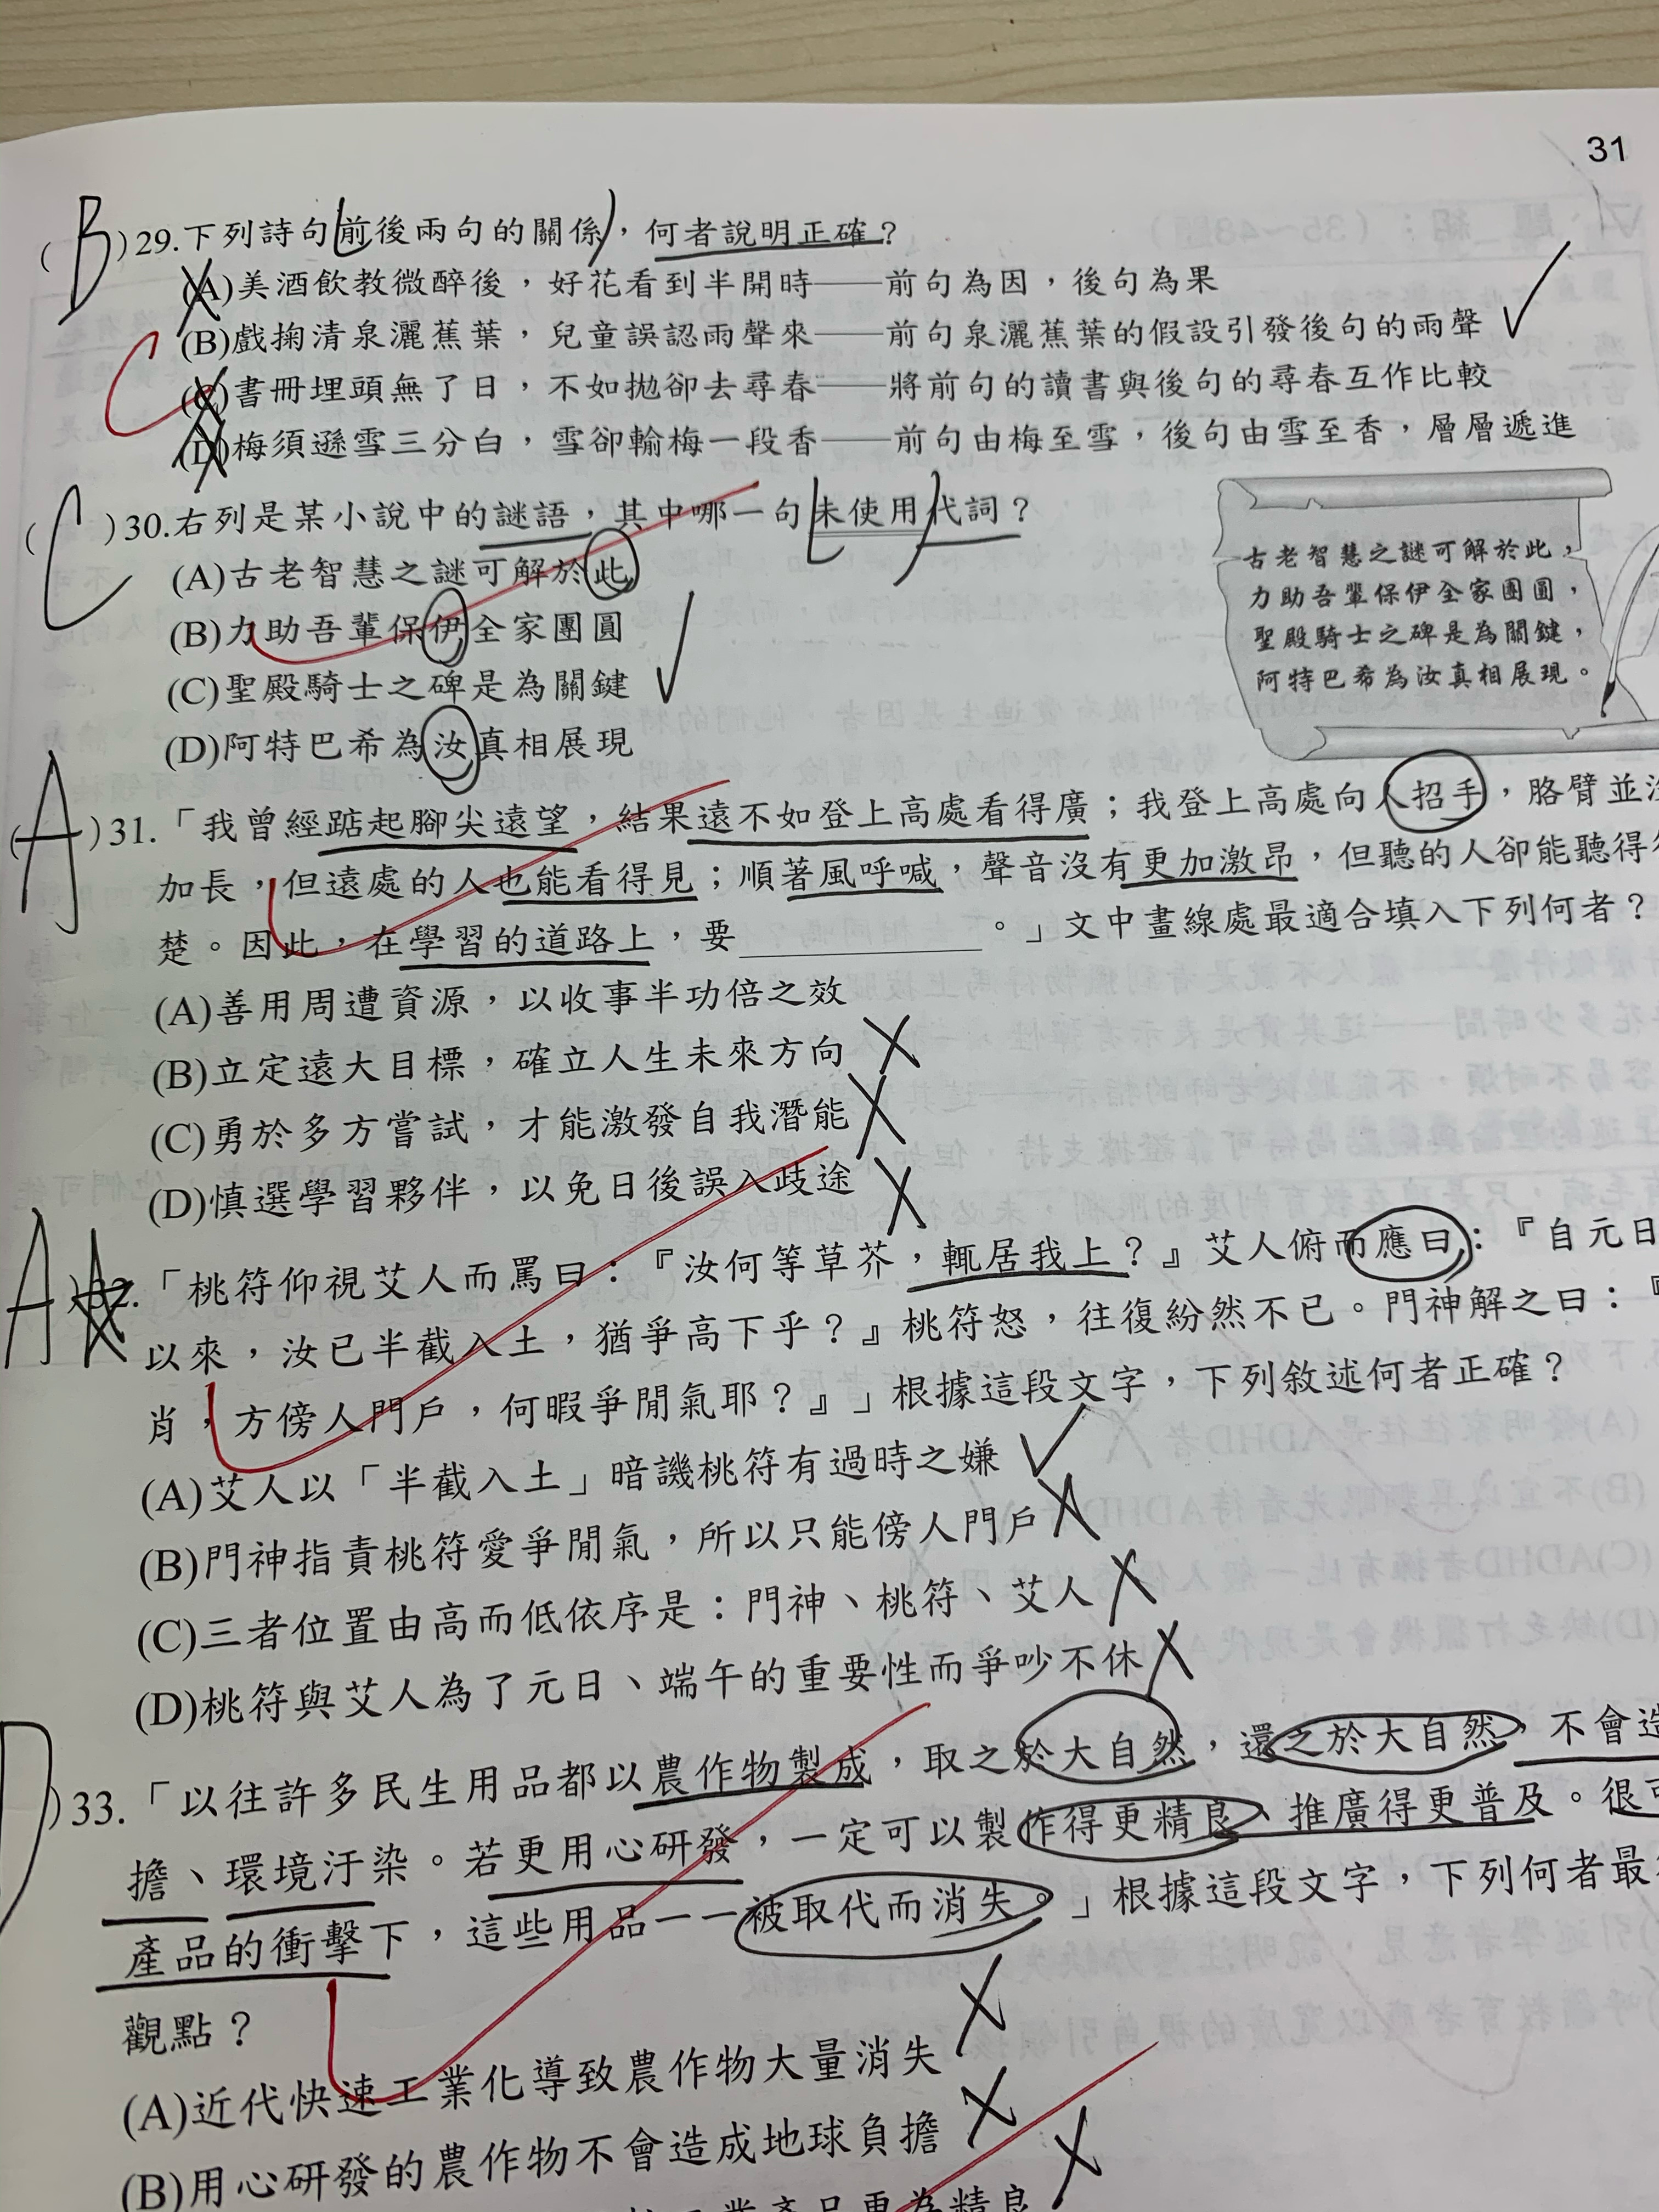 31
(B)29.下列詩句前後兩句的關係，何者說明正確？
(A)美酒飲教微醉後，好花看到半開時——前句為因，後句為果
(B)戲掬清泉灑蕉葉，兒童誤認雨聲來——前句泉灑蕉葉的假設引發後句的雨聲
C
(C)書冊埋頭無了日，不如拋卻去尋春——將前句的讀書與後句的尋春互作比較
(D)梅須遜雪三分白，雪卻輸梅一段香——前句由梅至雪，後句由雪至香，層層遞進
(C)30.右列是某小說中的謎語，其中哪一句未使用代詞？
(A)古老智慧之謎可解於此
(B)力助吾輩保伊全家團圓
(C)聖殿騎士之碑是為關鍵
(D)阿特巴希為汝真相展現
古老智慧之謎可解於此，
力助吾輩保伊全家團圓，
聖殿騎士之碑是為關鍵，
阿特巴希為汝真相展現。
(A)31.「我曾經踮起腳尖遠望，結果遠不如登上高處看得廣；我登上高處向人招手，胳臂並
加長，但遠處的人也能看得見；順著風呼喊，聲音沒有更加激昂，但聽的人卻能聽得
楚。因此，在學習的道路上，要＿＿＿＿＿＿。」文中畫線處最適合填入下列何者？
(A)善用周遭資源，以收事半功倍之效
(B)立定遠大目標，確立人生未來方向
(C)勇於多方嘗試，才能激發自我潛能
(D)慎選學習夥伴，以免日後誤入歧途
A )32.「桃符仰視艾人而罵曰：『汝何等草芥，輒居我上？』艾人俯而應曰：『自元日
以來，汝已半截入土，猶爭高下乎？』桃符怒，往復紛然不已。門神解之曰：『
肖，方傍人門戶，何暇爭閒氣耶？』」根據這段文字，下列敘述何者正確？
(A)艾人以「半截入土」暗譏桃符有過時之嫌
(B)門神指責桃符愛爭閒氣，所以只能傍人門戶
(C)三者位置由高而低依序是：門神、桃符、艾人
(D)桃符與艾人為了元日、端午的重要性而爭吵不休
)33.「以往許多民生用品都以農作物製成，取之於大自然，還之於大自然，不會造
擔、環境汙染。若更用心研發，一定可以製作得更精良、推廣得更普及。很可
產品的衝擊下，這些用品一一被取代而消失。」根據這段文字，下列何者最
觀點？
(A)近代快速工業化導致農作物大量消失
(B)用心研發的農作物不會造成地球負擔
工業產品更為精良